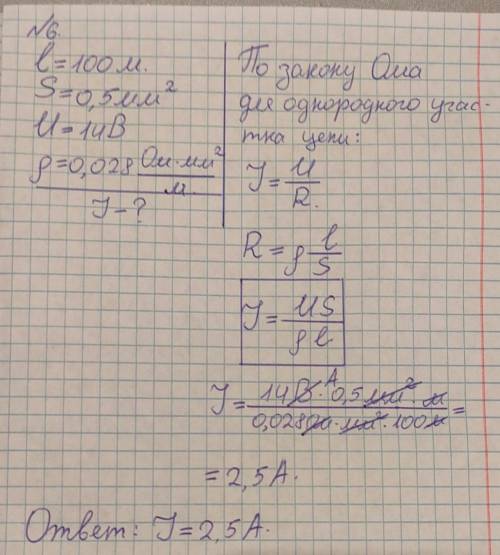 №6.
l=100 м.
S=0,5 мм²
U=14В
ρ=0,028 Ом·мм²/м
I-?
По закону Ома
для однородного учас-
тка цепи:
I=U/R.
R=ρ l/S
I=US/ρl
I=14В·А 0,5 мм²·м/0,028Ом·мм²·100м=
=2,5А.
Ответ: I=2,5А.